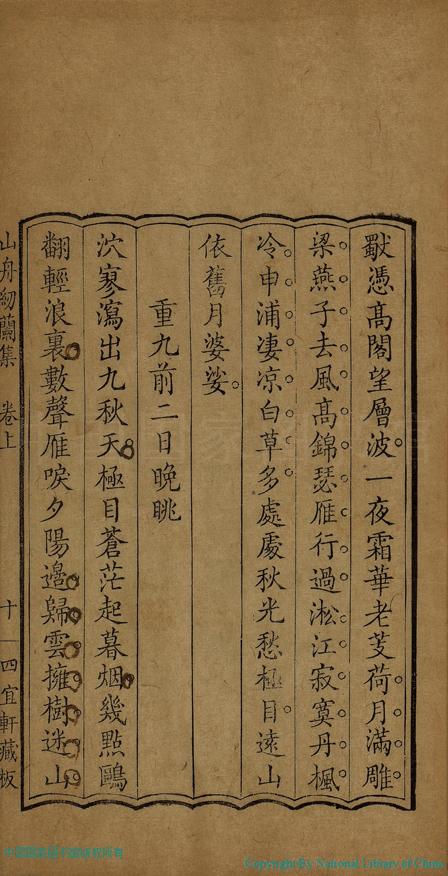 獸憑高閣望層波一夜霜華老芰荷月滿雕
梁燕子去風高錦瑟雁行過淞江寂寞丹楓
冷申浦凄凉白草多處處秋光愁極目遠山
依舊月婆娑
重九前二日晚眺
泬寥瀉出九秋天極目蒼茫起暮烟幾點鷗
翻輕浪裏數聲雁唳夕陽邊歸雲擁樹迷山
山舟紉蘭集 卷上 十一 四宜軒藏板
Copyright By National Library of China